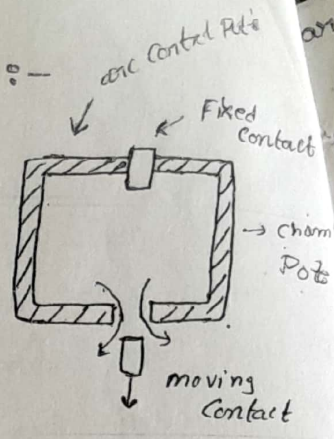 :-
arc Control Pot's
Fixed
Contact
→ Cham
Pot
moving
Contact